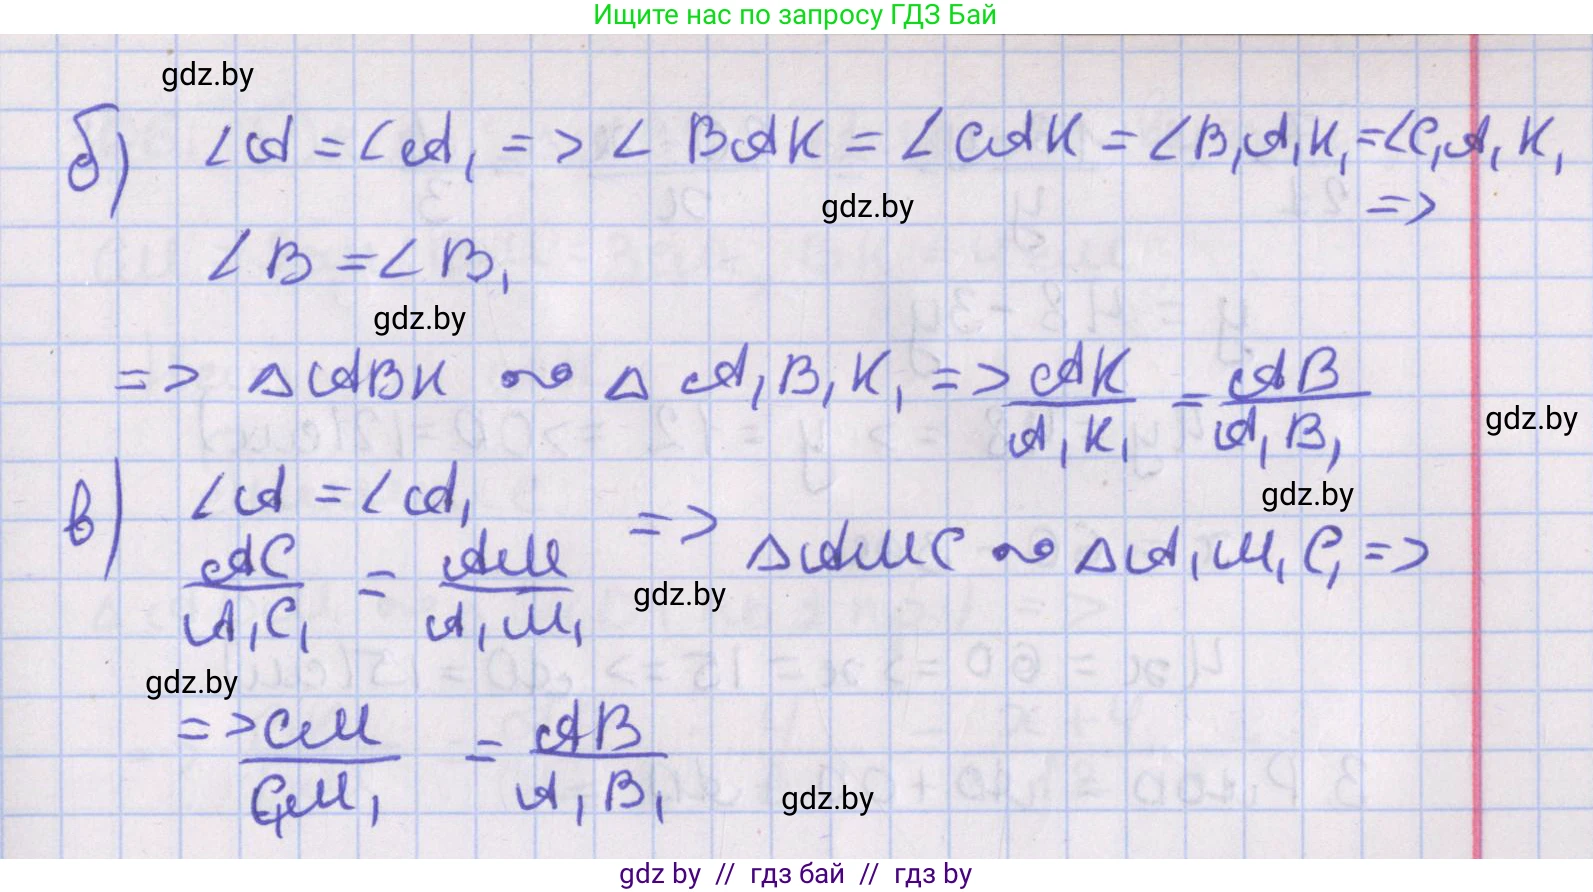 Ищите нас по запросу ГДЗ Бай
gdz.by
б) ∠A = ∠A₁ => ∠BAK = ∠CAK = ∠B₁A₁K₁ = ∠C₁A₁K₁
gdz.by
=>
∠B = ∠B₁
gdz.by
=> △ABK ∾ △A₁B₁K₁ => AK/A₁K₁ = AB/A₁B₁
gdz.by
gdz.by
в) ∠A = ∠A₁
AC/A₁C₁ = AM/A₁M₁ => △AMC ∾ △A₁M₁C₁ =>
gdz.by
gdz.by
=> CM/C₁M₁ = AB/A₁B₁
gdz.by
gdz by // гдз бай // гдз by